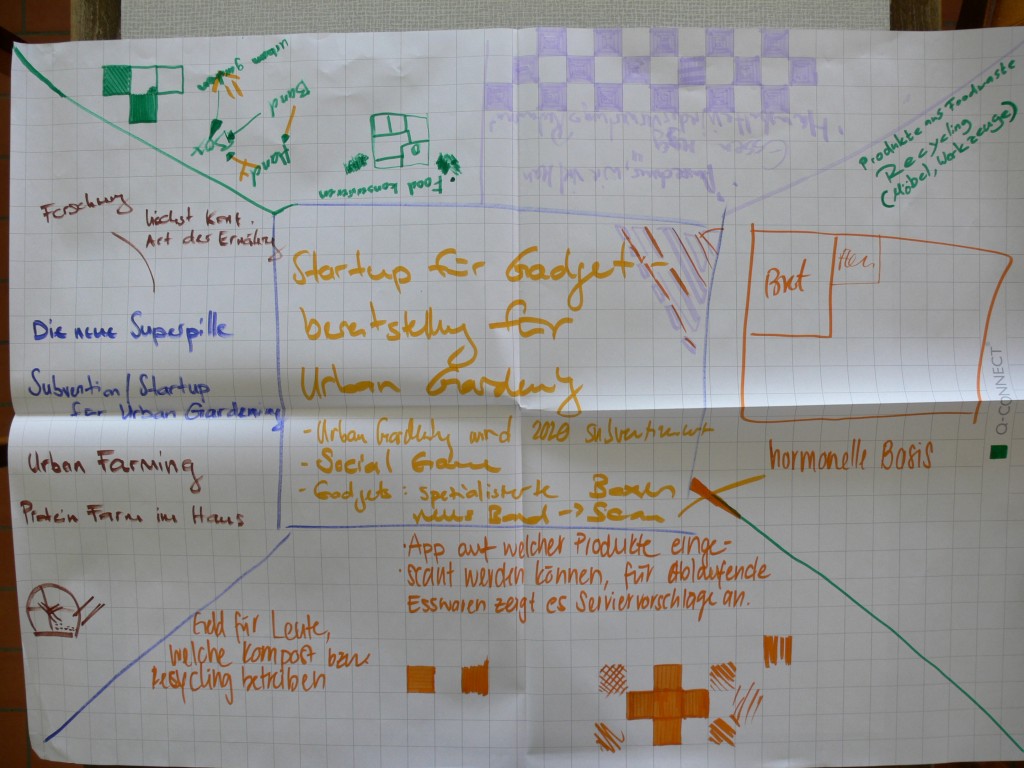 urban
garden
Band
Box
Handy
Food konsumieren
Essen
Produkte aus Foodwaste
Recycling
(Möbel, Werkzeuge)
Forschung
Art der Ernährg
Die neue Superpille
Subvention/Startup
für Urban Gardening
Urban Farming
Protein Farm im Haus
Startup für Gadget-
bereitstellg für
Urban Gardening
- Urban Gardening wird subventioniert
- Social Game
- Gadgets: spezialisierte Boxen
Band → Scan
Brot
Q-CONNECT
hormonelle Basis
· App auf welcher Produkte einge-
· scant werden können, für Ablaufende
Esswaren zeigt es Serviervorschläge an.
Geld für Leute,
welche Kompost bzw.
Recycling betreiben